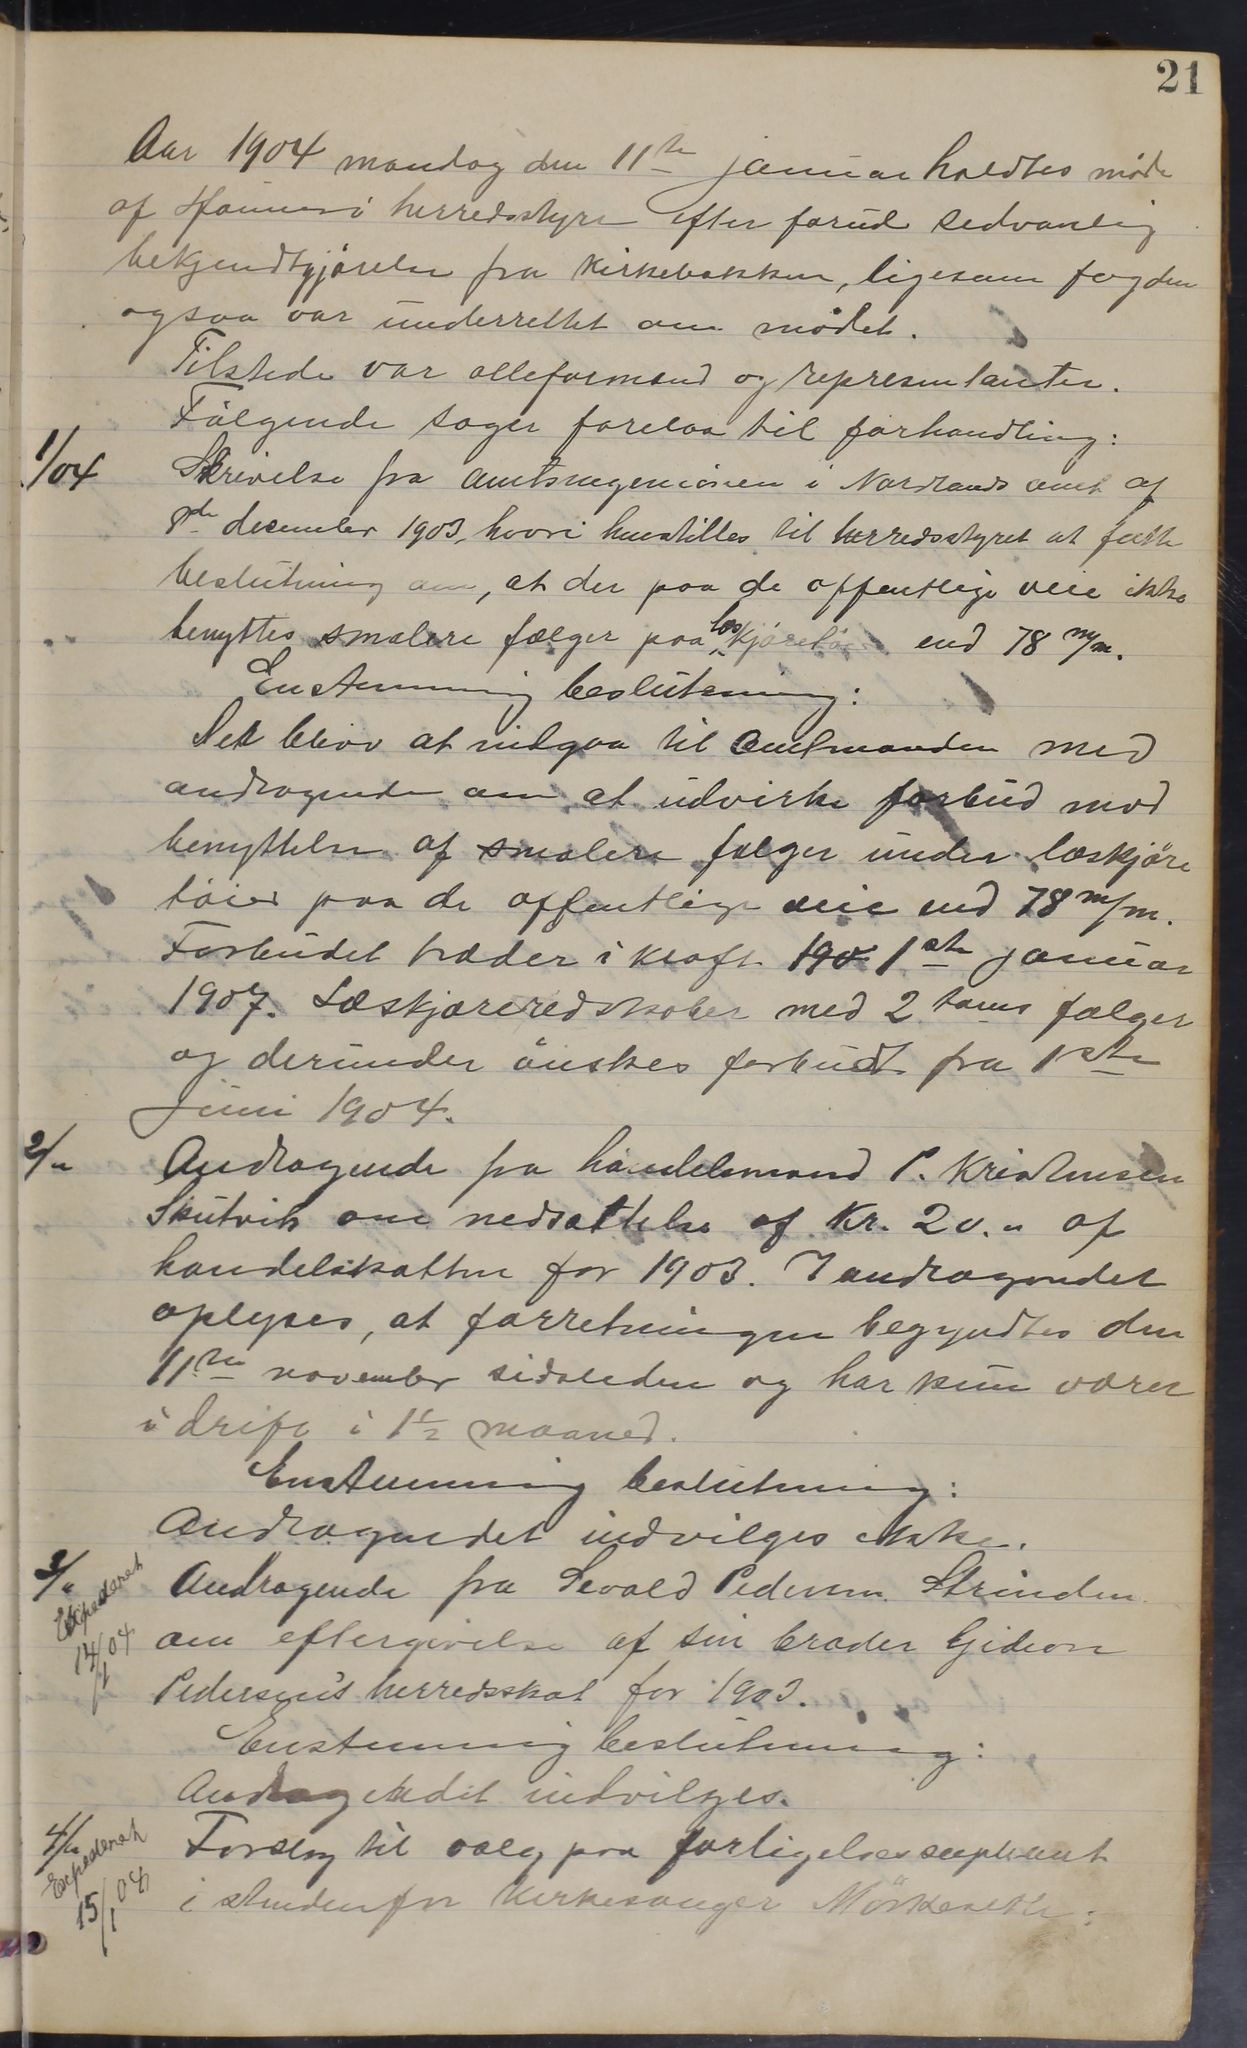 21
Aar 1904 mandag den 11te januar holdtes møde
af Hamerøi herredsstyre efter forud sedvanlig
bekjendtgjørelse fra kirkebakken, ligesom fogden
ogsaa var underrettet om mødet.
Tilstede var alleformænd og representanter.
Følgende sager forelaa til forhandling:
1/04 Skrivelse fra amtsingeniøren i Nordlands amt af
8de desember 1903, hvori henstilles til herredsstyret at fatte
beslutning om, at der paa de offentlige veie ikke
benyttes smalere fælger paa læskjøretøi end 78 m/m.
Enstemmig beslutning:
Det blev at indgaa til amtmanden med
andragende om at udvirke forbud mod
benyttelse af smalere fælger under læskjøre
tøier paa de offentlige veie end 78 m/m.
Forbudet træder i kraft 190 1ste januar
1907. Læskjøreredskaber med 2 toms fælger
og derunder ønskes forbudt fra 1ste
juni 1904.
2/" Andragende fra handelsmand P. Kristensen
Skutvik om nedsættelse af Kr. 20." af
handelskatten for 1903. I andragendet
oplyses, at forretningen begyndtes den
11te november sidstleden og har kun været
i drift i 1 1/2 maaned.
Enstemmig beslutning:
Andragendet indvilges ikke.
3/" Andragende fra Sevald Pedersen Strinden
Expederet 14/1 04
om eftergivelse af sin broder Gideon
Pedersen's herredsskat for 1903.
Enstemmig beslutning:
Andragendet indvilges.
4/" Forslag til valg paa forligelsessupleant
Expederet 15/1 04
i stedenfor kirkesanger